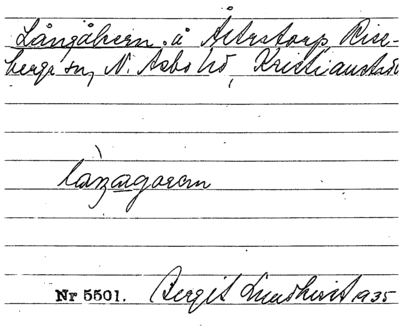 Långåkern. å Åstorp Rise-
berga sn, N. Åsbo hd, Kristianstads
Nr 5501. Bergit Lundkvist 1935